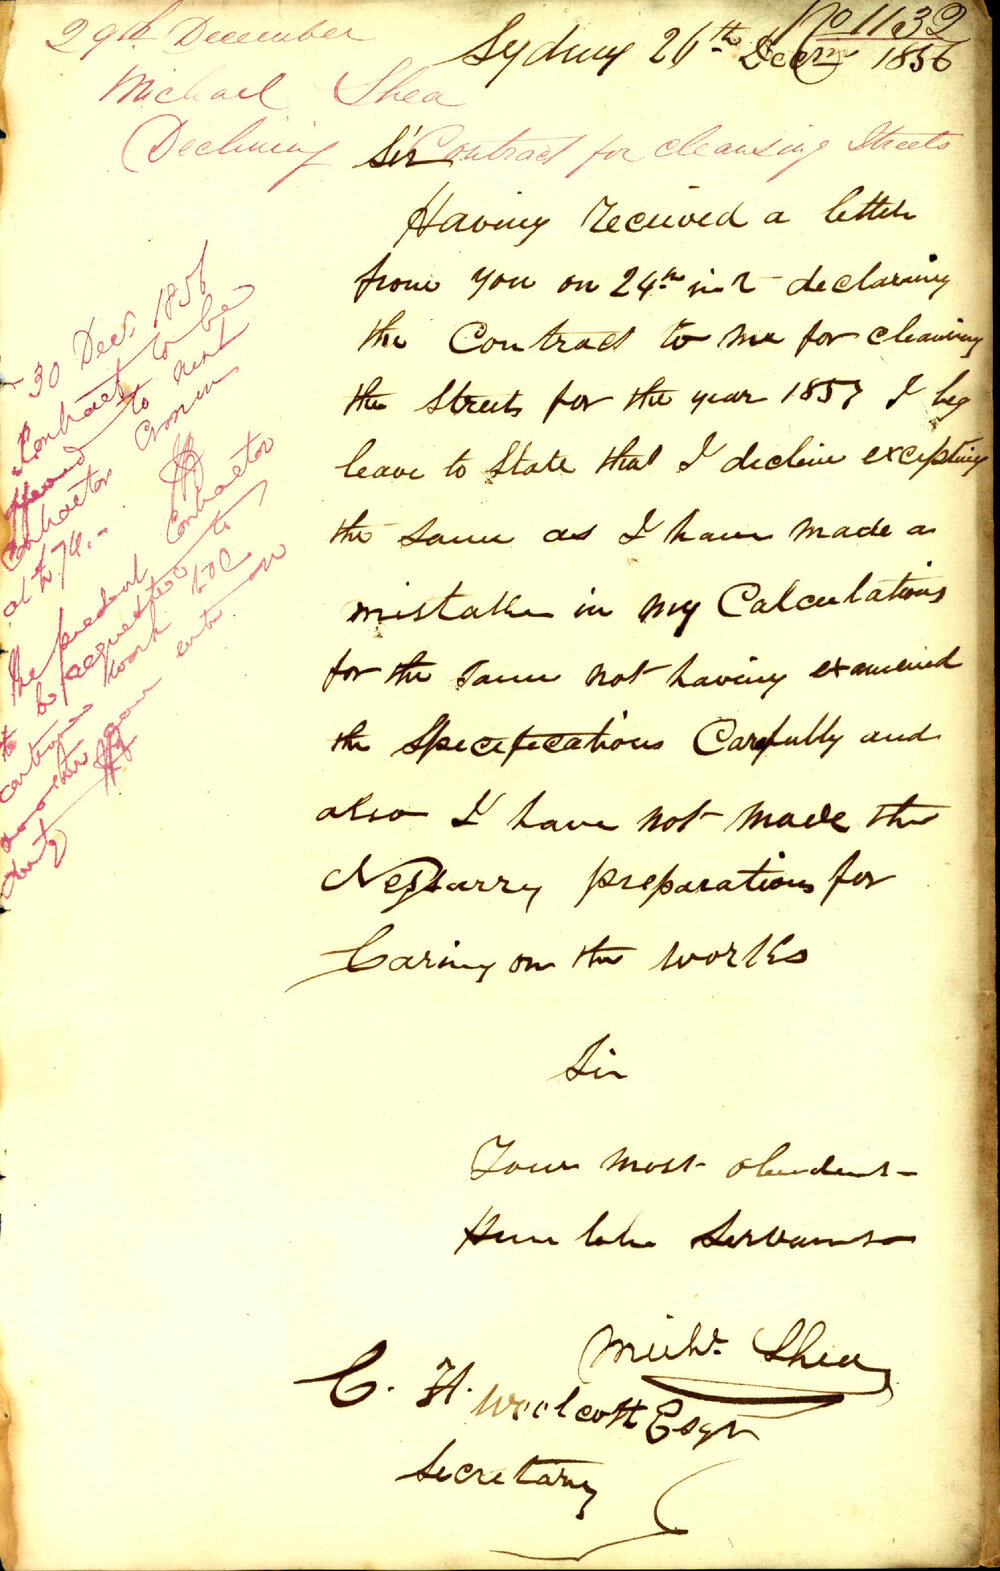 No 1132
29th December
Sydney 26th Decr 1856
Michael Shea
Declining Contract for cleansing Streets
Sir
Having received a letter
from you on 24th inst declaring
the Contract to me for cleaning
the Streets for the year 1857 I beg
leave to State that I decline excepting
the same as I have made a
mistake in my Calculations
for the same not having examened
the Specifications Carefully and
also I have not made the
Nessarry preparations for
Caring on the works
Sir
Your most obedient
Humble Servant
Michl. Shea
C. H. Woolcott Esqr
Secretary
30 Decr. 1856
Contract to be
offered to next
Contractor Cronin
at £74..
The present Contractor
to be requested to
continue work till
another can enter on
duty